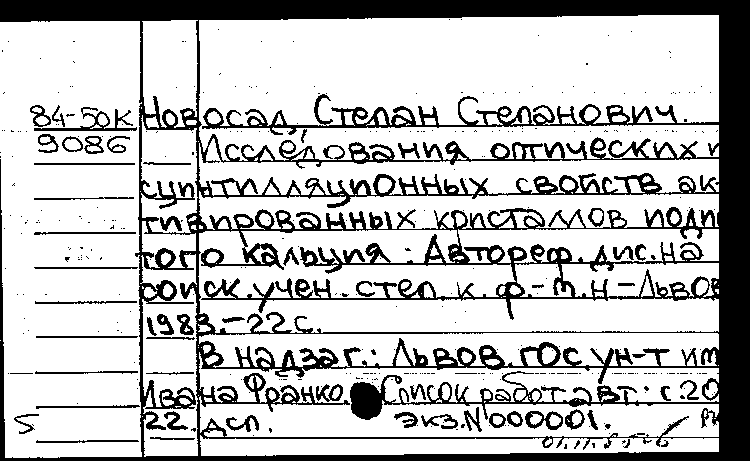 84-50к Новосад, Степан Степанович.
9086 Исследования оптических и
сцинтилляционных свойств ак-
тивированных кристаллов йоди
того кальция : Автореф. дис. на
соиск. учен. степ. к. ф.-м.н - Львов
1983.-22с.
В надзаг.: Львов. гос. ун-т им
Ивана Франко. Список работ авт.: с. 20
22. дсп. экз.N000001.
S